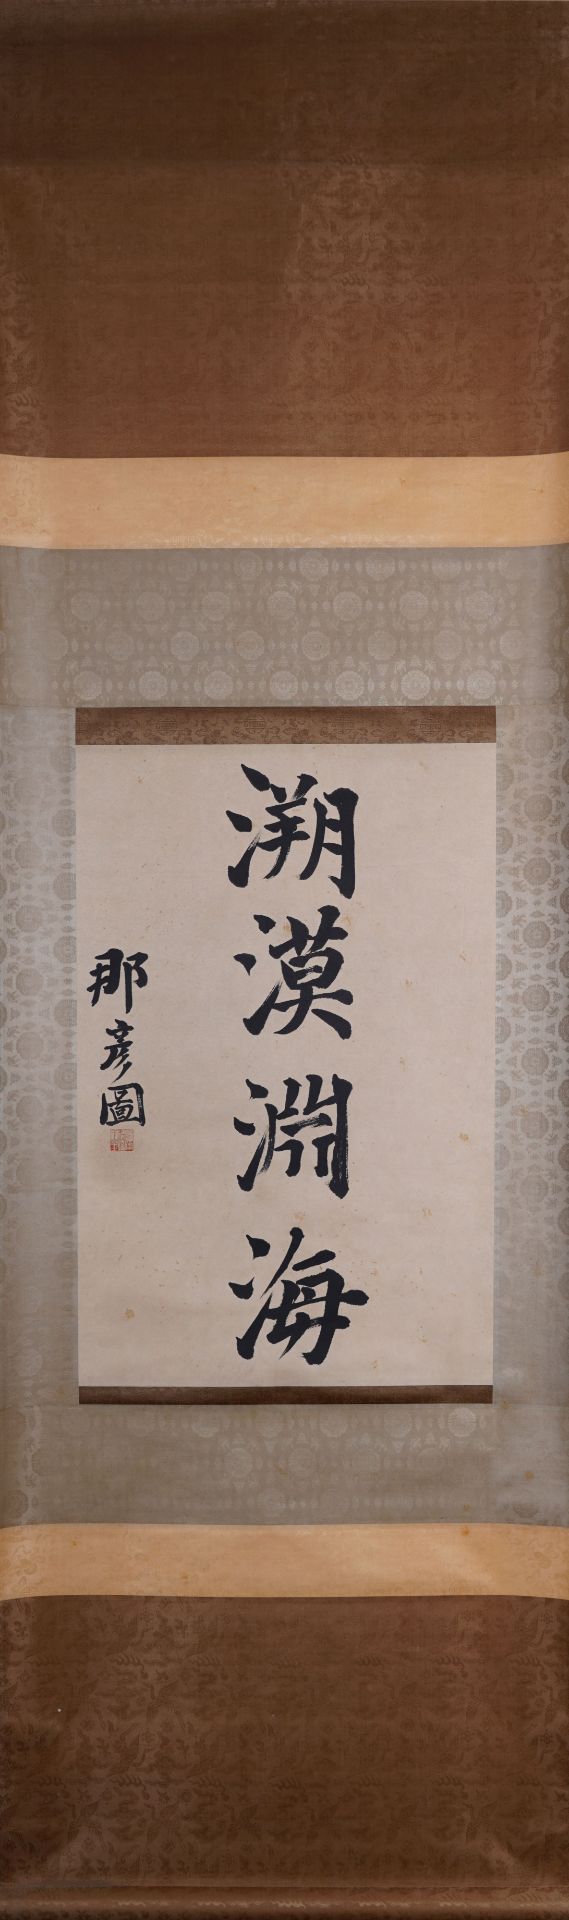 溯漠淵海
那彥圖